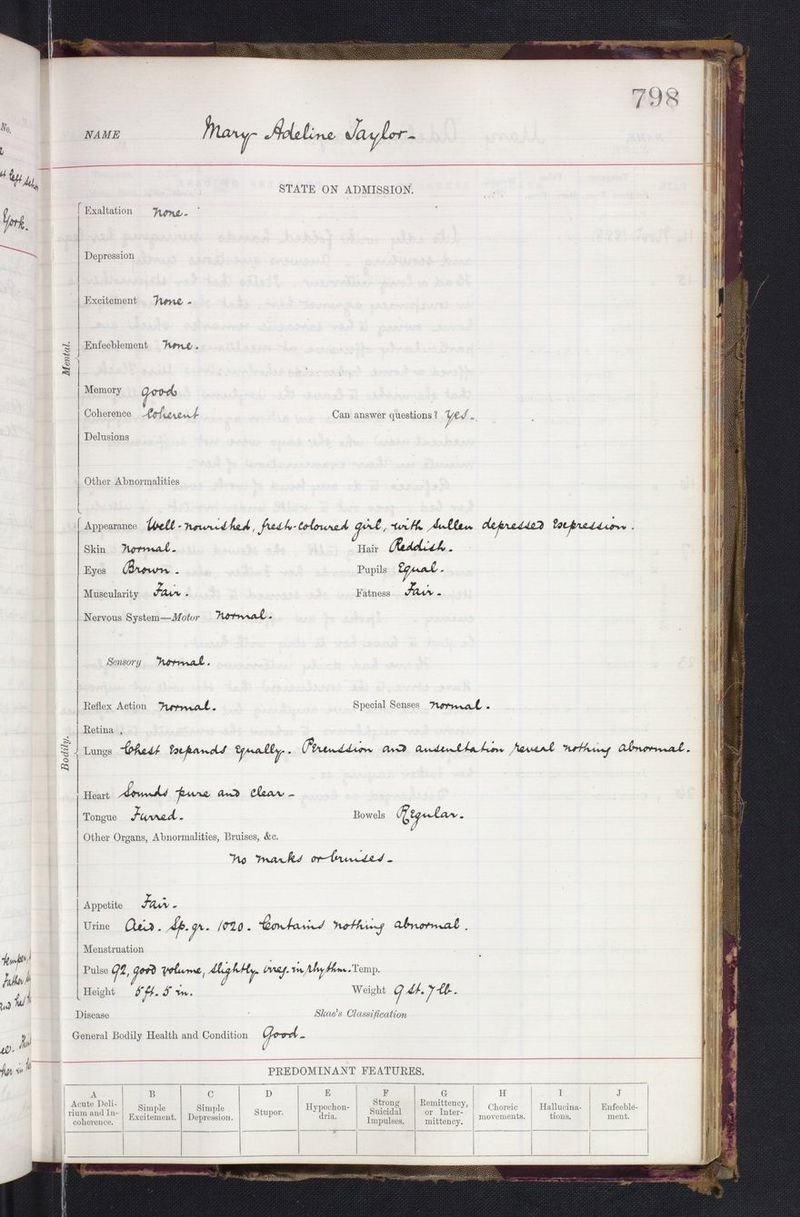 798
NAME Mary Adeline Taylor -
STATE ON ADMISSION.
Mental.
Exaltation None -
Depression
Excitement None -
Enfeeblement None.
Memory good
Coherence Coherent Can answer questions? Yes -
Delusions
Other Abnormalities
Bodily.
Appearance Well-nourished, fresh-coloured girl, with sullen depressed expression.
Skin Normal - Hair Reddish -
Eyes Brown - Pupils Equal -
Muscularity Fair - Fatness Fair -
Nervous System—Motor Normal -
Sensory Normal.
Reflex Action Normal. Special Senses Normal.
Retina
Lungs Chest expands equally. Percussion and auscultation reveal nothing abnormal.
Heart Sounds pure and clear -
Tongue Furred - Bowels Regular.
Other Organs, Abnormalities, Bruises, &c.
No marks or bruises -
Appetite Fair -
Urine Acid. Sp. gr. 1020. Contains nothing abnormal.
Menstruation
Pulse 92, good volume, slightly irreg. in rhythm. Temp.
Height 5 ft. 5 in. Weight 9 st. 7 lb.
Disease Skae's Classification
General Bodily Health and Condition Good -
PREDOMINANT FEATURES.
A B C D E F G H I J
Acute Delirium and Incoherence. Simple Excitement. Simple Depression. Stupor. Hypochondria. Strong Suicidal Impulses. Remittency, or Intermittency. Choreic movements. Hallucinations. Enfeeblement.
No.
York.